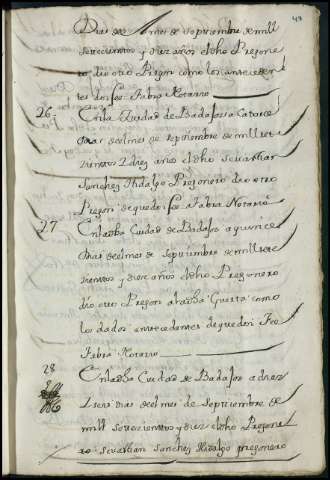 49
Dias del mes de septiembre de mill
setecientos y diez años el dho Pregone
ro dio otro Pregon como los anteceden
tes doi fee. Fabia Notario
26 En la Ciudad de Badajos a Catorce
dias del mes de septiembre de mill set
cientos y diez años el dho Sevastian
Sanchez Hidalgo Pregonero dio otro
Pregon de que doi fee a Fabia Notario
27 En la dha Ciudad de Badajos a quince
dias del mes de septiembre de mill sete
cientos y diez años el dho Pregonero
dio otro Pregon a la dha Guerta como
los dados antecedentes de que doi Fee
Fabia Notario
28 En la dha Ciudad de Badajos a diez
y seis dias del mes de septiembre de
mill setecientos y diez el dho Pregone
ro sevastian sanchez Hidalgo pregonero